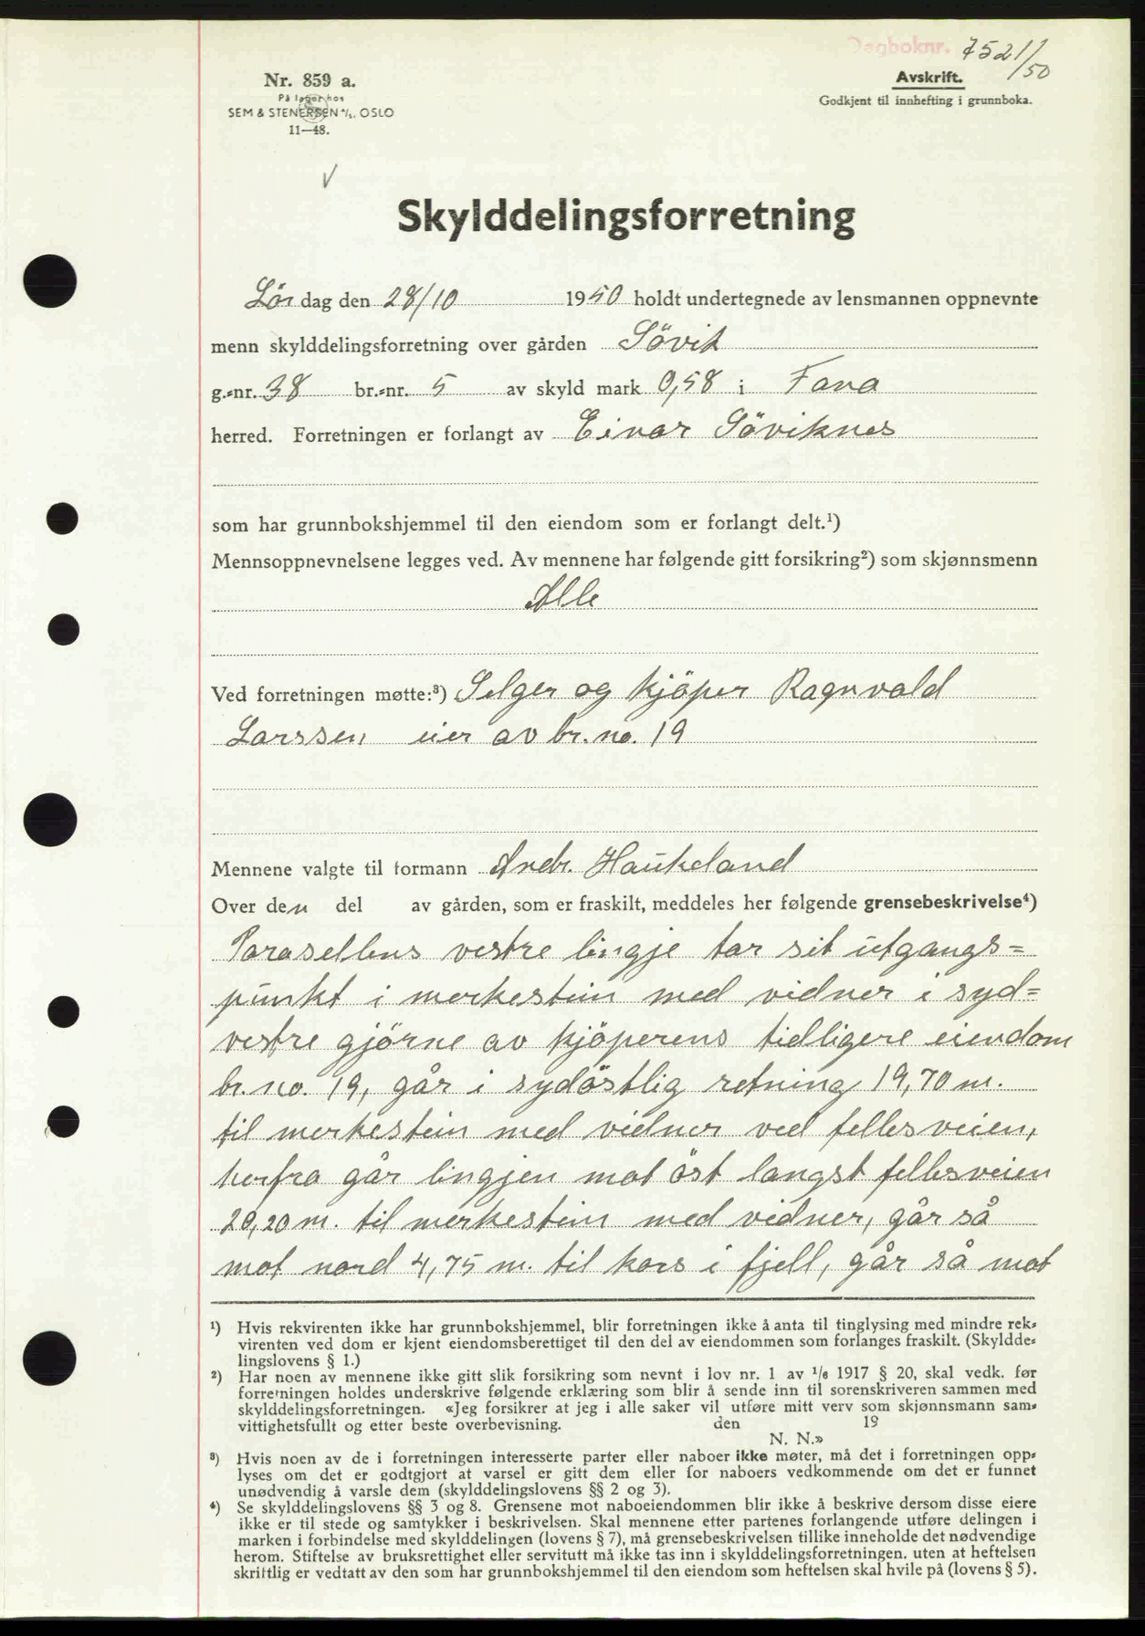 Dagboknr. 7521/50
Avskrift.
Godkjent til innhefting i grunnboka.
Nr. 859 a.
På lager hos
SEM & STENERSEN A/S, OSLO
11—48.
Skylddelingsforretning
Lördag den 28/10 1950 holdt undertegnede av lensmannen oppnevnte
menn skylddelingsforretning over gården Sövik
g.-nr. 38 br.-nr. 5 av skyld mark 0,58 i Fana
herred. Forretningen er forlangt av Einar Söviknes
som har grunnbokshjemmel til den eiendom som er forlangt delt.¹)
Mennsoppnevnelsene legges ved. Av mennene har følgende gitt forsikring²) som skjønnsmenn
Alle
Ved forretningen møtte:³) Selger og kjöper Ragnvald
Larssen eier av br. no. 19
Mennene valgte til formann Andr. Haukeland
Over den del av gården, som er fraskilt, meddeles her følgende grensebeskrivelse⁴)
Parasellens vestre lingje tar sit utgangs=
punkt i merkestein med vidner i syd=
vestre gjörne av kjöperens tidligere eiendom
br. no. 19, går i sydöstlig retning 19,70 m.
til merkestein med vidner ved fellesveien,
herfra går lingjen mot öst langst fellesveien
20,20 m. til merkestein med vidner, går så
mot nord 4,75 m. til kors i fjell, går så mot
¹) Hvis rekvirenten ikke har grunnbokshjemmel, blir forretningen ikke å anta til tinglysing med mindre rek-
virenten ved dom er kjent eiendomsberettiget til den del av eiendommen som forlanges fraskilt. (Skyldde-
lingslovens § 1.)
²) Har noen av mennene ikke gitt slik forsikring som nevnt i lov nr. 1 av 1/6 1917 § 20, skal vedk. før
forretningen holdes underskrive følgende erklæring som blir å sende inn til sorenskriveren sammen med
skylddelingsforretningen. «Jeg forsikrer at jeg i alle saker vil utføre mitt verv som skjønnsmann sam-
vittighetsfullt og etter beste overbevisning. den 19
N. N.»
³) Hvis noen av de i forretningen interesserte parter eller naboer ikke møter, må det i forretningen opp-
lyses om det er godtgjort at varsel er gitt dem eller for naboers vedkommende om det er funnet
unødvendig å varsle dem (skylddelingslovens §§ 2 og 3).
⁴) Se skylddelingslovens §§ 3 og 8. Grensene mot naboeiendommen blir ikke å beskrive dersom disse eiere
ikke er til stede og samtykker i beskrivelsen. Skal mennene etter partenes forlangende utføre delingen i
marken i forbindelse med skylddelingen (lovens § 7), må grensebeskrivelsen tillike inneholde det nødvendige
herom. Stiftelse av bruksrettighet eller servitutt må ikke tas inn i skylddelingsforretningen. uten at heftelsen
skriftlig er vedtatt av den som har grunnbokshjemmel til den eiendom som heftelsen skal hvile på (lovens § 5).